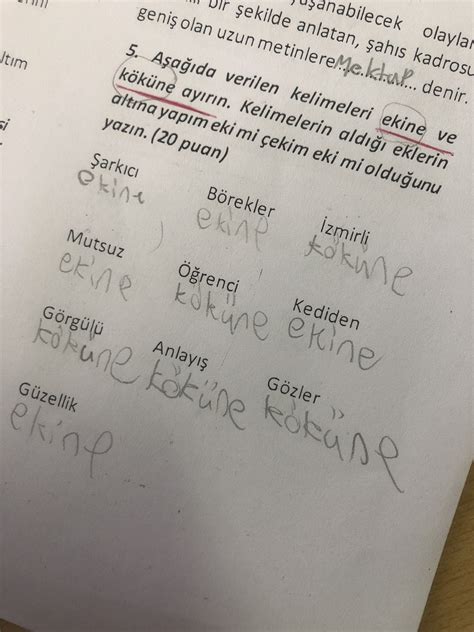 bir şekilde anlatan, şahıs kadrosu
geniş olan uzun metinlere...Mektup... denir.
5. Aşağıda verilen kelimeleri ekine ve
köküne ayırın. Kelimelerin aldığı eklerin
altına yapım eki mi çekim eki mi olduğunu
yazın. (20 puan)
Şarkıcı Börekler İzmirli
ekine ekine köküne
Mutsuz Öğrenci Kediden
ekine köküne ekine
Görgülü Anlayış Gözler
köküne köküne köküne
Güzellik
ekine